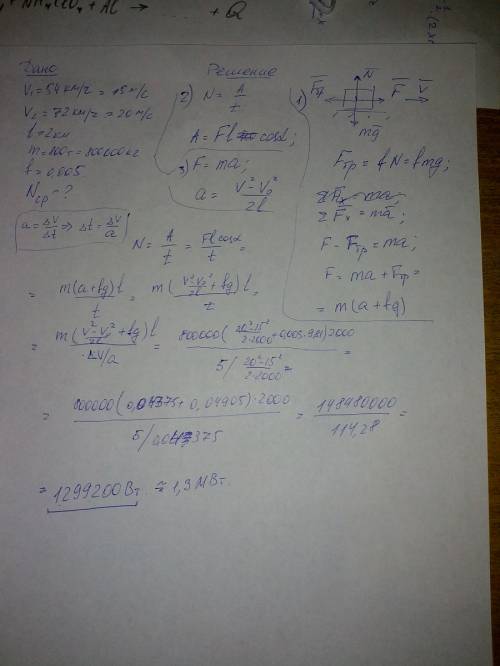 + NH₄ClO₄ + Al → + Q
Дано
V₁ = 54 км/ч = 15 м/с
V₂ = 72 км/ч = 20 м/с
l = 2 км
m = 800т = 800000 кг
f = 0,005
Nср - ?
a = ΔV/Δt ⇒ Δt = ΔV/a
Решение
1)
N
Fтр F V
mg
Fтр = fN = fmg;
ΣFx = ma;
F - Fтр = ma;
F = ma + Fтр =
= m(a + fg)
2) N = A/t
A = Fl cosα;
3) F = ma;
a = (V² - V₀²)/2l
N = A/t = Fl cosα/t =
= m(a + fg)l/t = m((V² - V₀²)/2l + fg)l/t =
= m((V² - V₀²)/2l + fg)l/(ΔV/a) = 800000((20² - 15²)/(2·2000) + 0,005·9,81)2000/(5/((20² - 15²)/(2·2000))) =
= 800000(0,04375 + 0,04905)·2000/(5/0,04375) = 148480000/114,28 =
= 1299200 Вт ≈ 1,3 МВт.